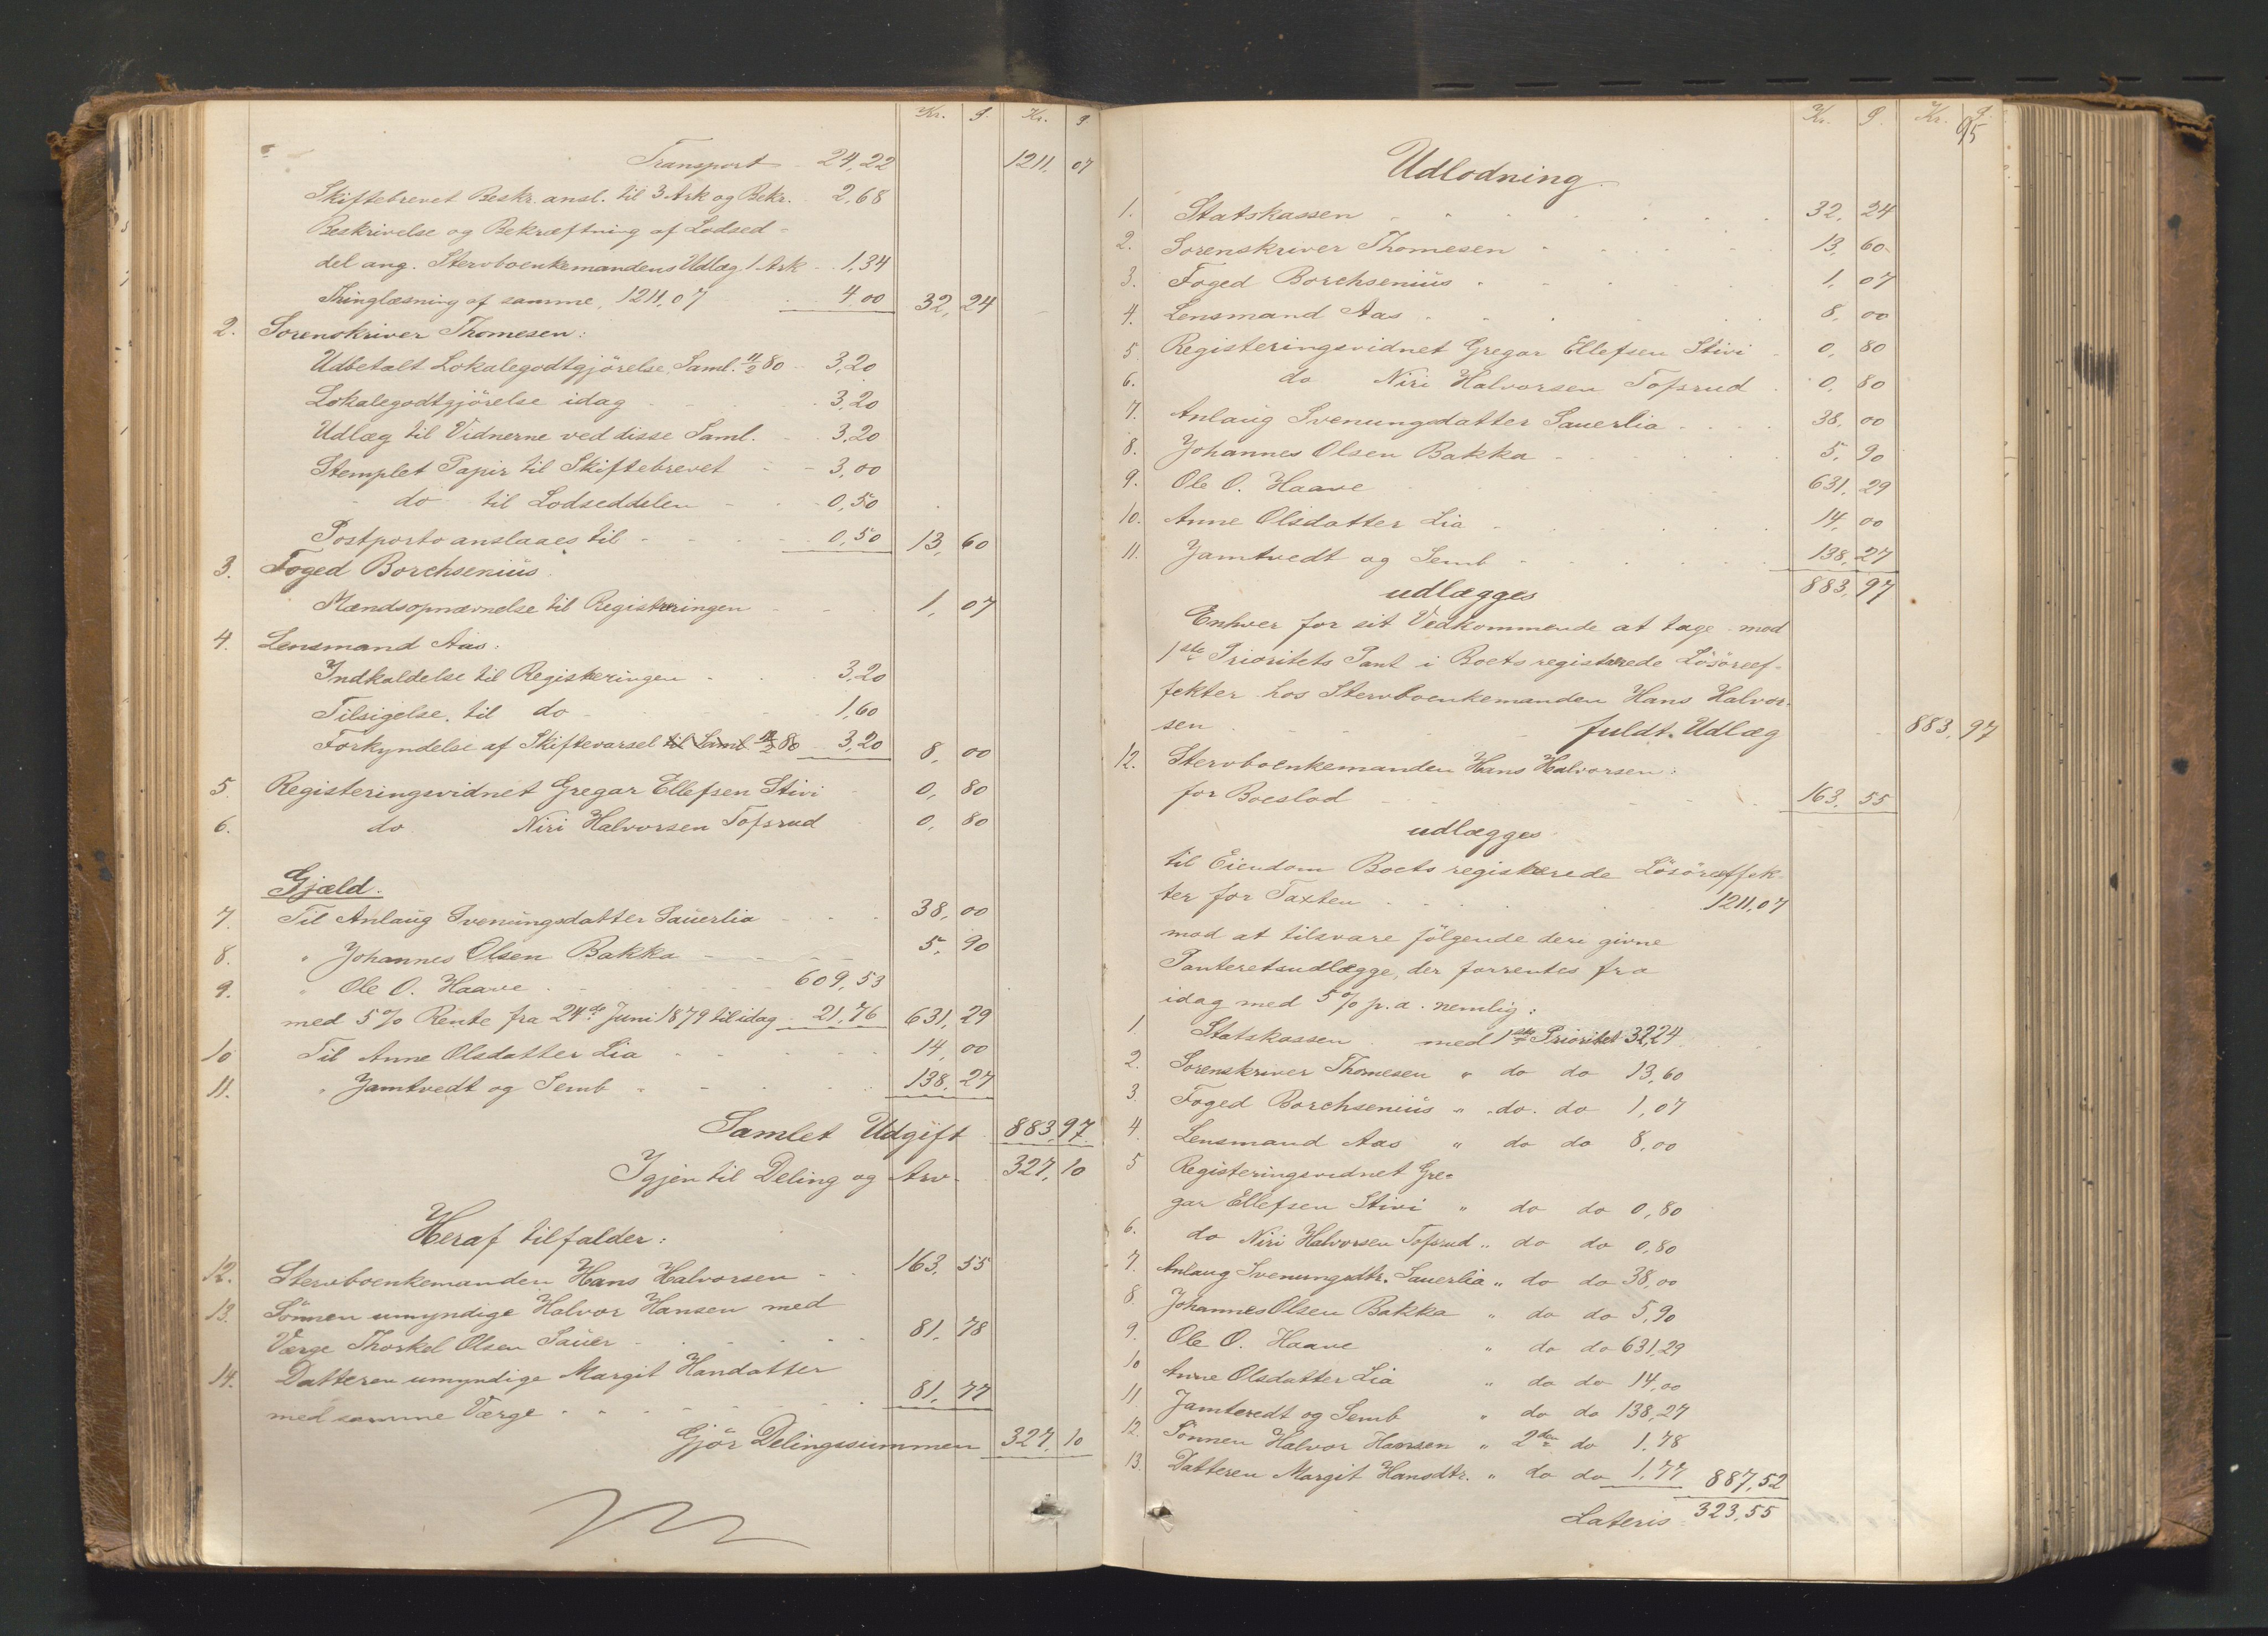 Kr. Ø. Kr. Ø.
Transport 24,22 1211, 07
Skiftebrevet Beskr. ansl. til 3 Ark og Bekr. 2,68
Beskrivelse og Bekræftning af Lodsed-
del ang. Stervboenkemandens Udlæg 1 Ark 1,34
Thinglæsning af samme, 1211,07 4,00 32, 24
2. Sorenskriver Thomesen:
Udbetalt Lokalegodtgjörelse, Saml. 11/2 80 3,20
Lokalegodtgjörelse idag 3,20
Udlæg til Vidnerne ved disse Saml. 3,20
Stemplet Papir til Skiftebrevet 3,00
do til Lodseddelen 0,50
Postporto anslaaes til 0,50 13, 60
3. Foged Borchsenius
Mændsopnævnelse til Registreringen 1, 07
4. Lensmand Aas:
Indkaldelse til Registeringen 3,20
Tilsigelse til do 1,60
Forkyndelse af Skiftevarsel til Saml 11/2 80 3,20 8, 00
5. Registeringsvidnet Gregar Ellefsen Stivi 0, 80
6. do Niri Halvorsen Tofsrud 0, 80
Gjæld.
7. Til Anlaug Svenungsdatter Sauerlia 38, 00
8. " Johannes Olsen Bakka 5, 90
9. " Ole O. Haave 609,53
med 5% Rente fra 24de Juni 1879 til idag 21,76 631, 29
10 Til Anne Olsdatter Lia 14, 00
11. " Jamtvedt og Semb 138, 27
Samlet Udgift 883, 97
Igjen til Deling og Arv 327, 10
Heraf tilfalder:
12. Stervboenkemanden Hans Halvorsen 163, 55
13. Sönnen umyndige Halvor Hansen med
Værge Thorkel Olsen Sauer 81, 78
14. Datteren umyndige Margit Handatter
med samme Værge 81, 77
Gjör Delingssummen 327, 10
Kr. Ø. Kr. Ø.
95
Udlodning.
1. Statskassen 32, 24
2. Sorenskriver Thomesen 13, 60
3. Foged Borchsenius 1, 07
4. Lensmand Aas 8, 00
5 Registeringsvidnet Gregar Ellefsen Stivi 0, 80
6. do Niri Halvorsen Tofsrud 0, 80
7. Anlaug Svenungsdatter Sauerlia 38, 00
8. Johannes Olsen Bakka 5, 90
9. Ole O. Haave 631, 29
10. Anne Olsdatter Lia 14, 00
11. Jamtvedt og Semb 138, 27
udlægges 883, 97
Enhver for sit Vedkommende at tage mod
1ste Prioritets Pant i Boets registrerede Lösöreef-
fekter hos Stervboenkemanden Hans Halvor-
sen fuldt Udlæg 883, 97
12. Stervboenkemanden Hans Halvorsen:
for Boeslod 163, 55
udlægges
til Eiendom Boets registrerede Lösöreeffek-
ter for Taxten 1211,07
mod at tilsvare fölgende deri givne
Panteretsudlægge, der forrentes fra
idag med 5% p.a. nemlig:
1 Statskassen med 1ste Prioritet 32,24
2. Sorenskriver Thomesen " do do 13,60
3. Foged Borchsenius " do. do 1,07
4. Lensmand Aas " do do 8,00
5 Registeringsvidnet Gre-
gar Ellefsen Stivi " do do 0,80
6. do Niri Halvorsen Tofsrud " do do 0,80
7. Anlaug Svenungsdtr. Sauerlia " do do 38,00
8. Johannes Olsen Bakka " do do 5,90
9. Ole O. Haave " do do 631,29
10 Anne Olsdatter Lia " do do 14,00
11 Jamtvedt og Semb " do do 138,27
12. Sönnen Halvor Hansen " 2den do 1,78
13. Datteren Margit Hansdtr. " do do 1,77 887,52
Lateris 323,55